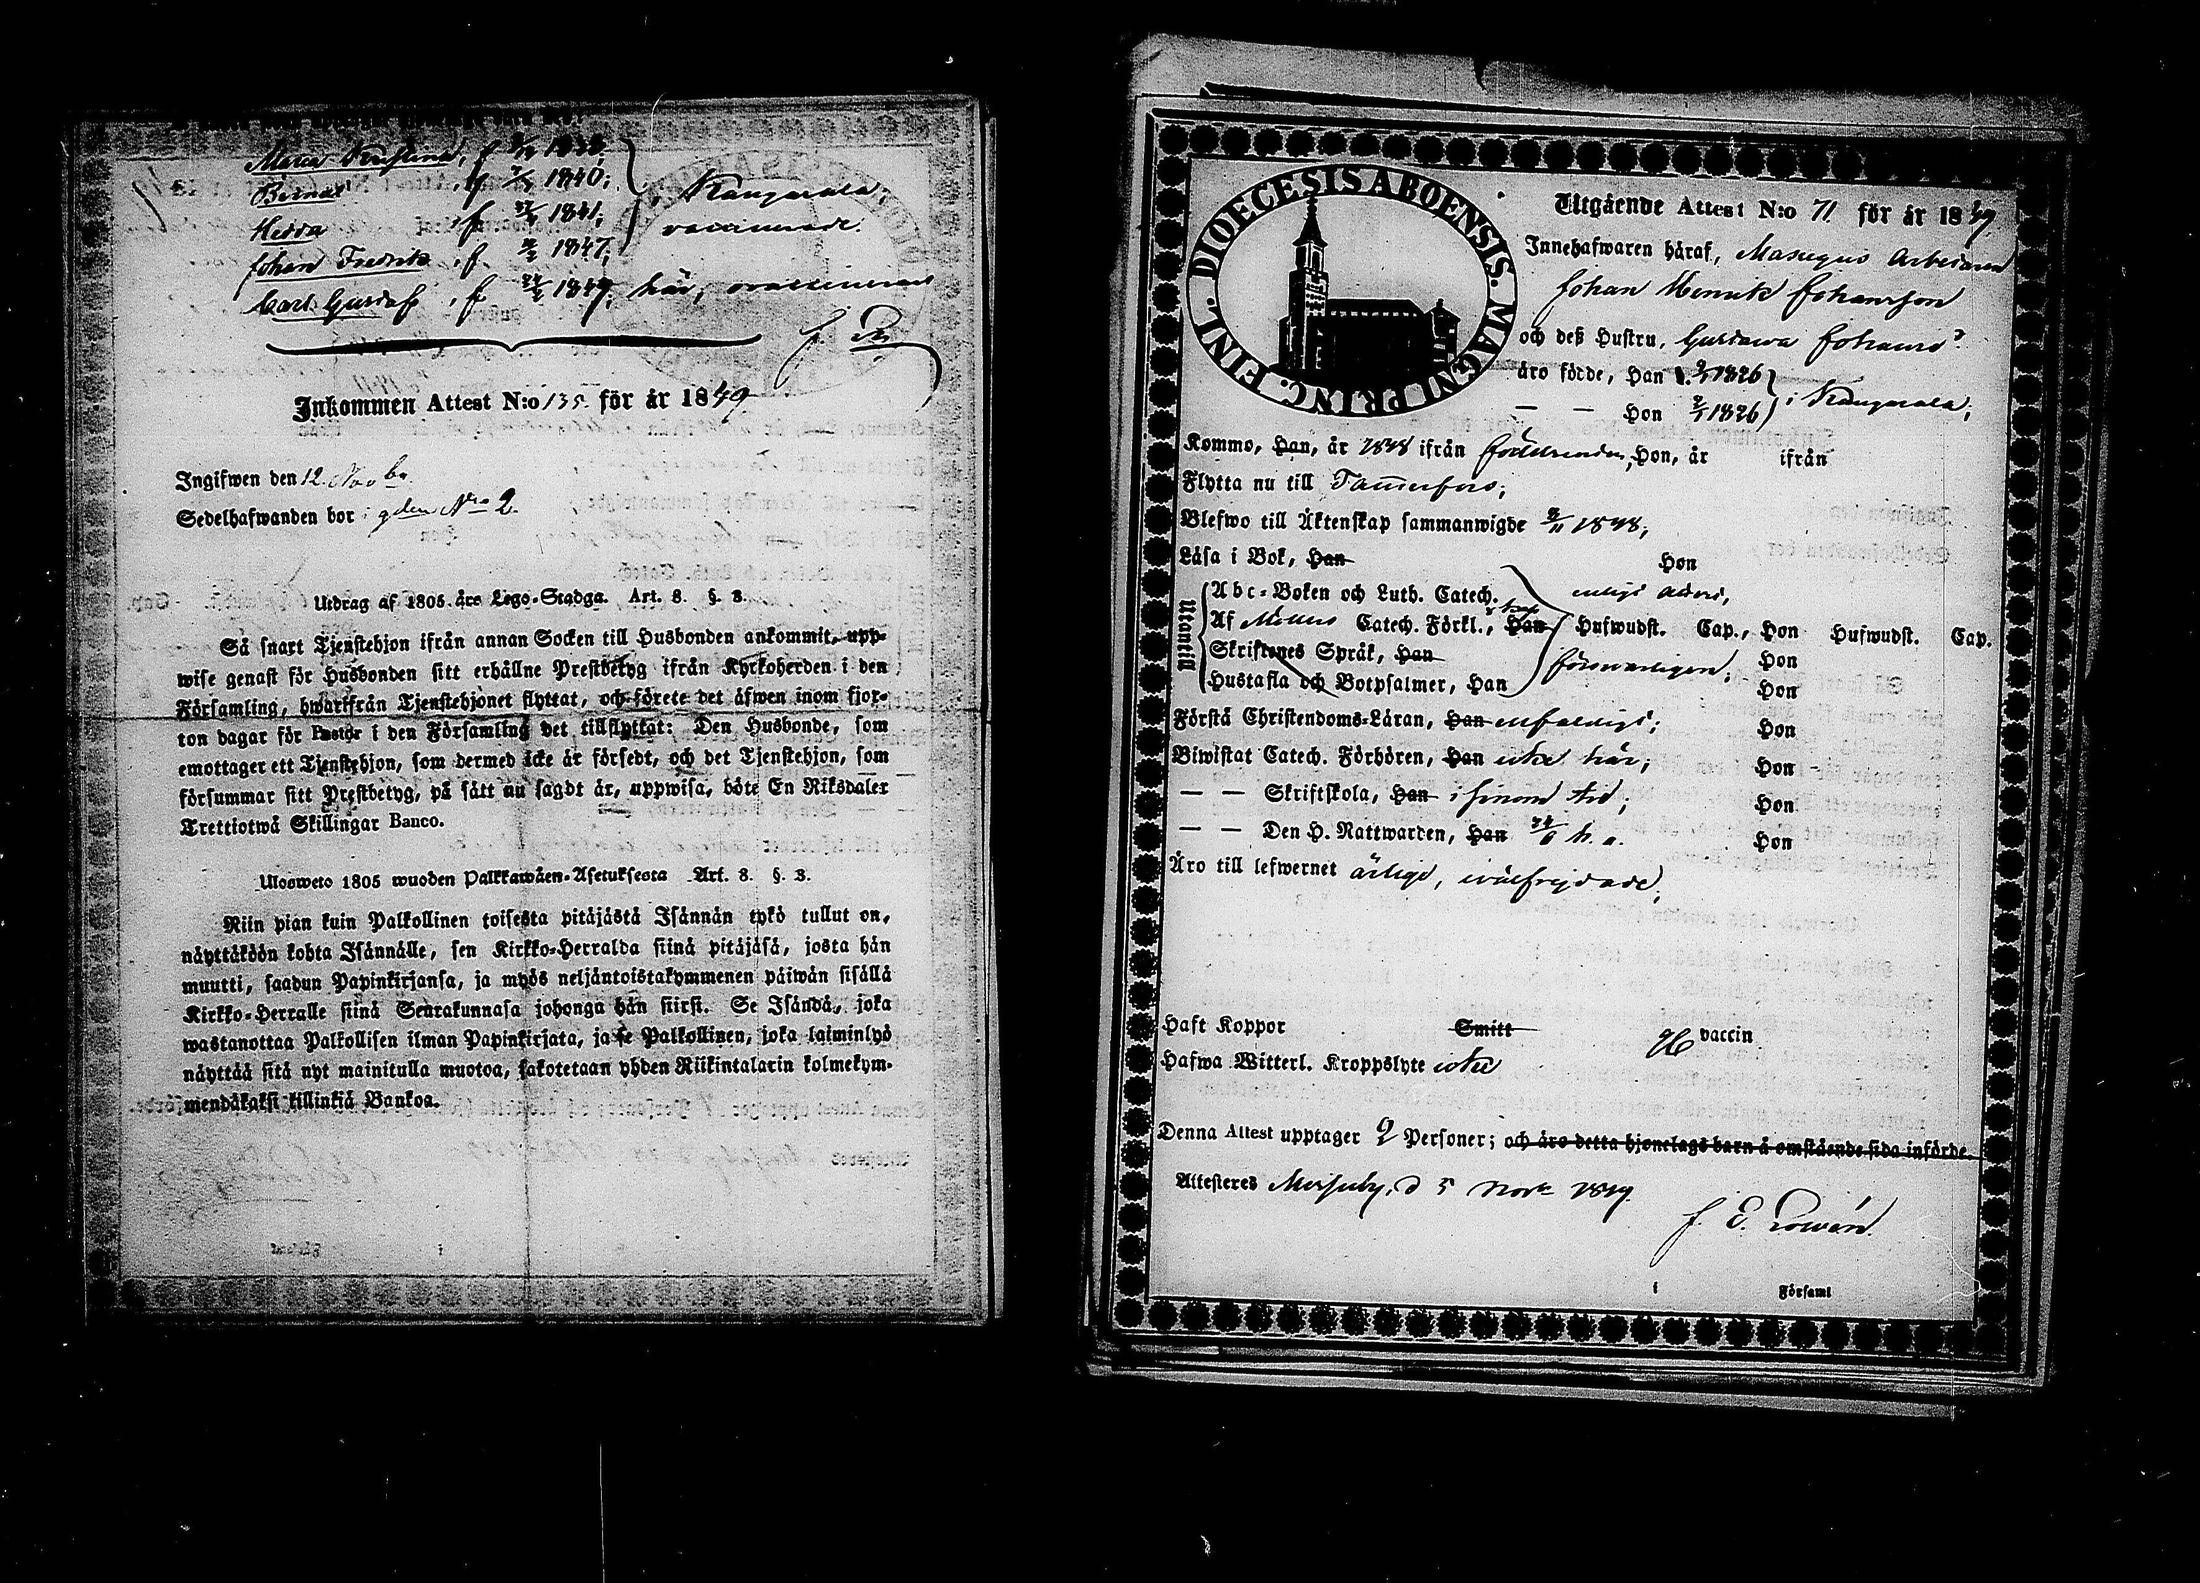 Maria Kristina, f 1838;
Berndt, f 1840;
Hedda f. 27 1841; Kangasala
Johan Fredrik, f. 1847; vaccinerade.
Carl Gustaf, f 1849; här, ovaccinerad
Inkommen Attest N:o 135. för år 1849.
Ingifwen den 12. Novbr.
Sedelhafwanden bor i gden Nro 2
Utdrag af 1805. års Lego-Stadga. Art. 8. §. 3.
Så snart Tjenstehjon ifrån annan Socken till Husbonden ankommit, upp-
wise genast för Husbonden sitt erhållne Prestbetyg ifrån Kyrkoherden i den
Församling, hwarifrån Tjenstehjonet flyttat, och förete det äfwen inom fjor-
ton dagar för Pastor i den Församling det tillflyttat: Den Husbonde, som
emottager ett Tjenstehjon, som dermed icke är försedt, och det Tjenstehjon, som
försummar sitt Prestbetyg, på sätt nu sagdt är, uppwisa, böte En Riksdaler
Trettiotwå Skillingar Banco.
Ulosweto 1805 wuoden Palkkawäen-Asetuksesta Art. 8. §. 3.
Niin pian kuin Palkollinen toisesta pitäjästä Isännän tykö tullut on,
näyttäköön kohta Isännälle, sen Kirkko-Herralda siinä pitäjäsä, josta hän
muutti, saadun Papinkirjansa, ja myös neljäntoistakymmenen päiwän sisällä
Kirkko-Herralle siinä Seurakunnasa johonga hän siirsi. Se Isändä, joka
wastanottaa Palkollisen ilman Papinkirjata, ja se Palkollinen, joka laiminlyö
näyttää sitä nyt mainitulla muotoa, sakotetaan yhden Riikintalarin kolmekym-
mendäkaksi killinkiä Bankoa.
DIOECESIS ABOENSIS. MAGNI PRINC. FINL.
Utgående Attest N:o 71 för år 1849.
Innehafwaren häraf, Masugns Arbetaren
Johan Henrik Johansson
och deß Hustru, Gustawa Johansd:r
äro födde, Han 1826
— — Hon 1826 i Kangasala;
Kommo, Han, år 1848 ifrån födelseorten, Hon, år ifrån
Flytta nu till Tammerfors;
Blefwo till Äktenskap sammanwigde 1848;
Läsa i Bok, Han Hon
Utantill
Abc-Boken och Luth. Catech. enligt
Af Möllers Catech. Förkl., Han Hufwudst. Cap., Hon Hufwudst. Cap.
Skriftenes Språk, Han försvarligen; Hon
Hustafla och Botpsalmer, Han Hon
Förstå Christendoms-Läran, Han enfaldigt; Hon
Biwistat Catech. Förhören, Han icke här; Hon
— — Skriftskola, Han i sinom tid; Hon
— — Den H. Nattwarden, Han 24/6 h. a. Hon
Äro till lefwernet ärlige, wälfrejdade;
Haft Koppor Smitt vaccin
Hafwa Witterl. Kroppslyte icke
Denna Attest upptager 2 Personer; och äro detta hjonelags barn å omstående sida införde.
Attesteras Messuby, d 5 Novbr 1849.
i Församl